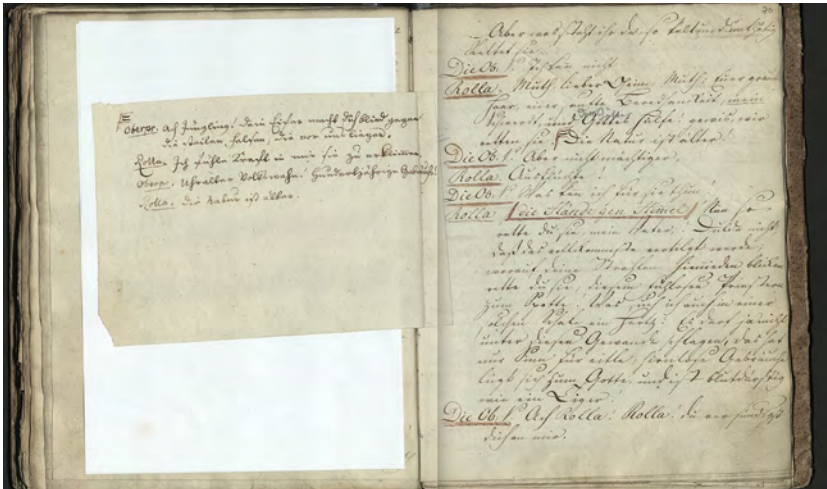 Oberpr. Ach Jüngling! dein Eifer macht dich blind gegen
die steilen Felsen, die vor uns liegen.
Rolla. Ich fühle Kraft in mir sie zu erklimmen.
Oberpr. Uhralter Volkswahn! Hundertjährige Gebräuche!
Rolla. die Natur ist älter.
70
Aber was steht ihr da so kalt und unthätig
Rettet sie.
Die Ob. Pr. Ich kan nicht.
Rolla. Muth, lieber Oheim, Muth! Euer graues
Haar, eure sanfte Beredsamkeit, mein
Schwerdt, und Gottes Hülfe! gewis, wir
retten sie! Die Natur ist älter!
Die Ob. Pr. Aber nicht mächtiger.
Rolla. Ausflüchte!
Die Ob. Pr. Was kan ich für sie thun?
Rolla (die Hände gen Himel) Nun so
rette du sie, mein Vater! Dulde nicht
daß das vollkommenste vertilgt werde,
worauf deine Strahlen hienieden blicken
rette du sie, diesem fühllosen Priester
zum Spotte! Was such ich auch in einer
solchen Schale ein Hertz! Es darf ja nicht
unter diesem Gewande schlagen, das hat
nur Sinn für eitle, hirnlose Gebräuche
lügt sich zum Gotte, und ist blutdürstig
wie ein Tiger!
Die Ob. Pr. Ach Rolla! Rolla! du versündigst
dich an mir.